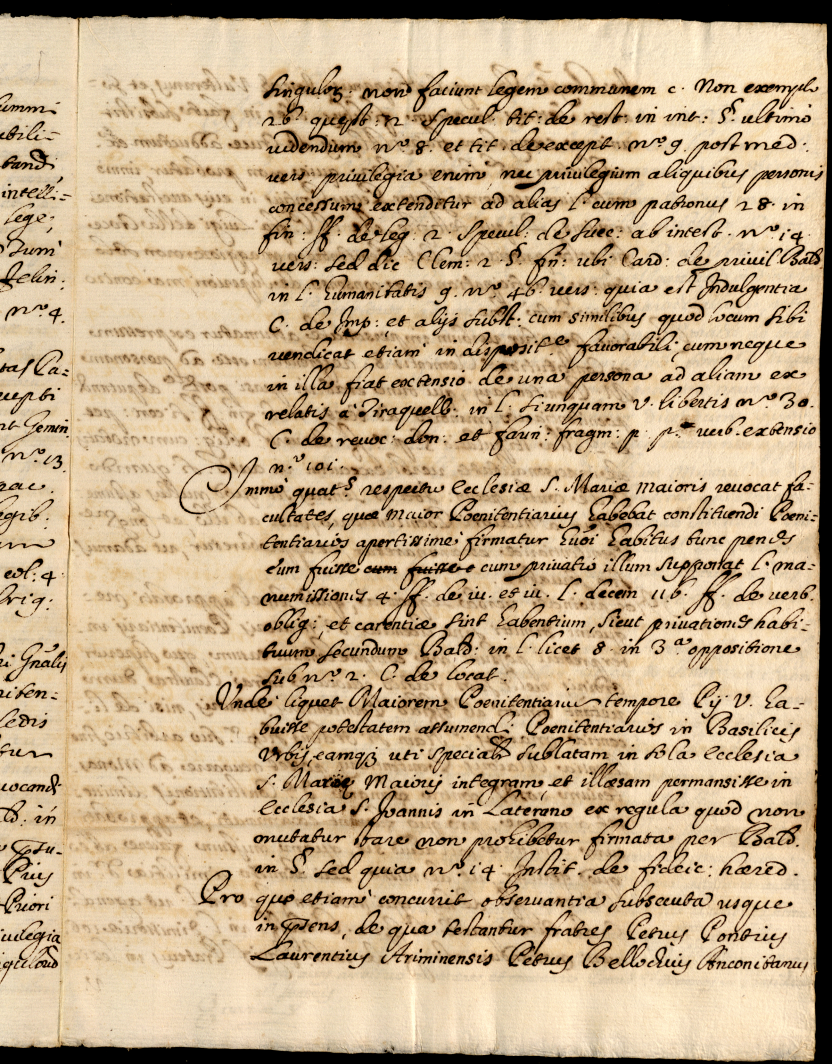 ummi
utili-
tand
intelli-
lege;
Zum
Felin:
nº 4.
tas Ca-
cepti
nt Gemin.
nº 13
rac.
egib:
eol: 4
brig:
ri Gnalis
niten-
ledis
tur
uocand
ld: in
psu-
Pius
Priori
iuilegia
singuloz: non faciunt legem communem c. Non exemplo
26 quest: 2. Specul. tit: de rest. in int: §. ultimo
uidendum nº 8. et tit. de except. nº 9. post med.
vers. priuilegia enim, nec priuilegium aliquibus personis
concessum extenditur ad alias l. cum patronus 28. in
fin: ff. de leg. 2. Specul: de succ: ab intest. nº 14
vers: sed dic Clem: 2. §. fin: ubi Card: de priuil Bald
in l. humanitatis 9. nº 46 vers: quia est Indulgentia
C. de Imp: et alijs subst: cum similibus quod locum sibi
vendicat etiam in disposit.e fauorabili, cum neque
in illa fiat extensio de una persona ad aliam ex
relatis à Tiraquell: in l: siunquam v. libertis nº 30.
C. de reuoc: don: et farin: fragm: p. p.a verb. extensio
n.º 101.
Immo quat.s respectu Ecclesiæ S. Mariæ maioris reuocat fa-
cultates, quæ maior Poenitentiarius habebat constituendi Poeni-
tentiarios apertissime firmatur huiõi habitus tunc penes
eum fuisse cum fuisse e cum priuatio illum supponat l. ma-
numissiones 4. ff. de iu. et iu. l. decem 116. ff. de verb.
oblig:, et carentiæ sint habentium, sicut priuationes habi-
tuum secundum Bald: in l. licet 8. in 3.a oppositione
sub nº 2. C. de locat.
Unde liquet Maiorem Poenitentiariu tempore Pij V. ha-
buisse potestatem assumendi Poenitentiarios in Basilicis
Vrbis, eamqz uti specialr sublatam in sola Ecclesia
S. Mariæ Maioris integram et illæsam permansisse in
Ecclesia S. Joannis in Laterano ex regula quod non
mutatur stare non prohibetur firmata per Bald.
in §. sed quia nº 14. Instit. de fideic: hæred.
Pro quo etiam concurrit obseruantia subsecuta usque
in pñs, de qua testantur fratres Petrus Pontius
Laurentius Ariminensis Petrus Bellochius Anconitanus